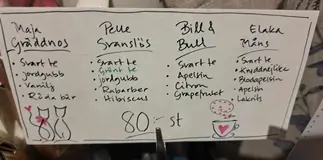 Maja
Gräddnos
• Svart te
• jordgubb
• Vanilj
• Röda bär
Pelle
Svanslös
• Svart te
• Grönt te
• jordgubb
• Rabarber
• Hibiscus
Bill &
Bull
• Svart te
• Apelsin
• Citron
• Grapefrukt
Elaka
Måns
• Svart te
• Blodapelsin
• Apelsin
• Lakrits
80:- st